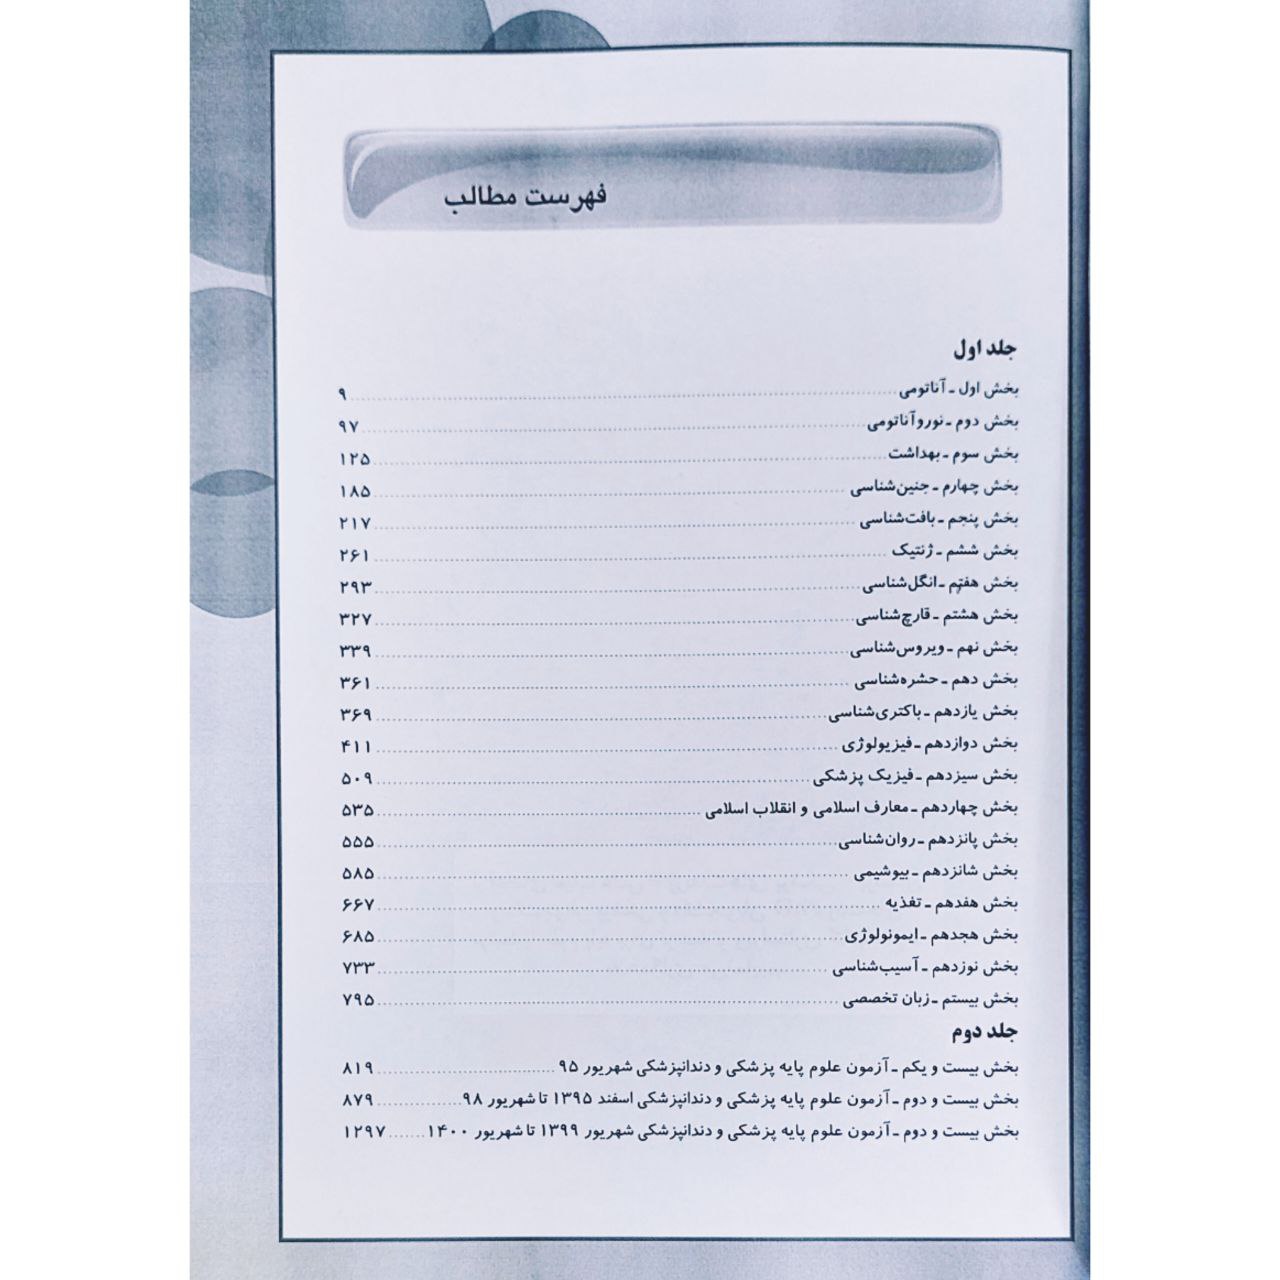 فهرست مطالب
جلد اول
بخش اول ـ آناتومی ۹
بخش دوم ـ نوروآناتومی ۹۷
بخش سوم ـ بهداشت ۱۲۵
بخش چهارم ـ جنین‌شناسی ۱۸۵
بخش پنجم ـ بافت‌شناسی ۲۱۷
بخش ششم ـ ژنتیک ۲۶۱
بخش هفتم ـ انگل‌شناسی ۲۹۳
بخش هشتم ـ قارچ‌شناسی ۳۲۷
بخش نهم ـ ویروس‌شناسی ۳۳۹
بخش دهم ـ حشره‌شناسی ۳۶۱
بخش یازدهم ـ باکتری‌شناسی ۳۶۹
بخش دوازدهم ـ فیزیولوژی ۴۱۱
بخش سیزدهم ـ فیزیک پزشکی ۵۰۹
بخش چهاردهم ـ معارف اسلامی و انقلاب اسلامی ۵۳۵
بخش پانزدهم ـ روان‌شناسی ۵۵۵
بخش شانزدهم ـ بیوشیمی ۵۸۵
بخش هفدهم ـ تغذیه ۶۶۷
بخش هجدهم ـ ایمونولوژی ۶۸۵
بخش نوزدهم ـ آسیب‌شناسی ۷۳۳
بخش بیستم ـ زبان تخصصی ۷۹۵
جلد دوم
بخش بیست و یکم ـ آزمون علوم پایه پزشکی و دندانپزشکی شهریور ۹۵ ۸۱۹
بخش بیست و دوم ـ آزمون علوم پایه پزشکی و دندانپزشکی اسفند ۱۳۹۵ تا شهریور ۹۸ ۸۷۹
بخش بیست و دوم ـ آزمون علوم پایه پزشکی و دندانپزشکی شهریور ۱۳۹۹ تا شهریور ۱۴۰۰ ۱۲۹۷